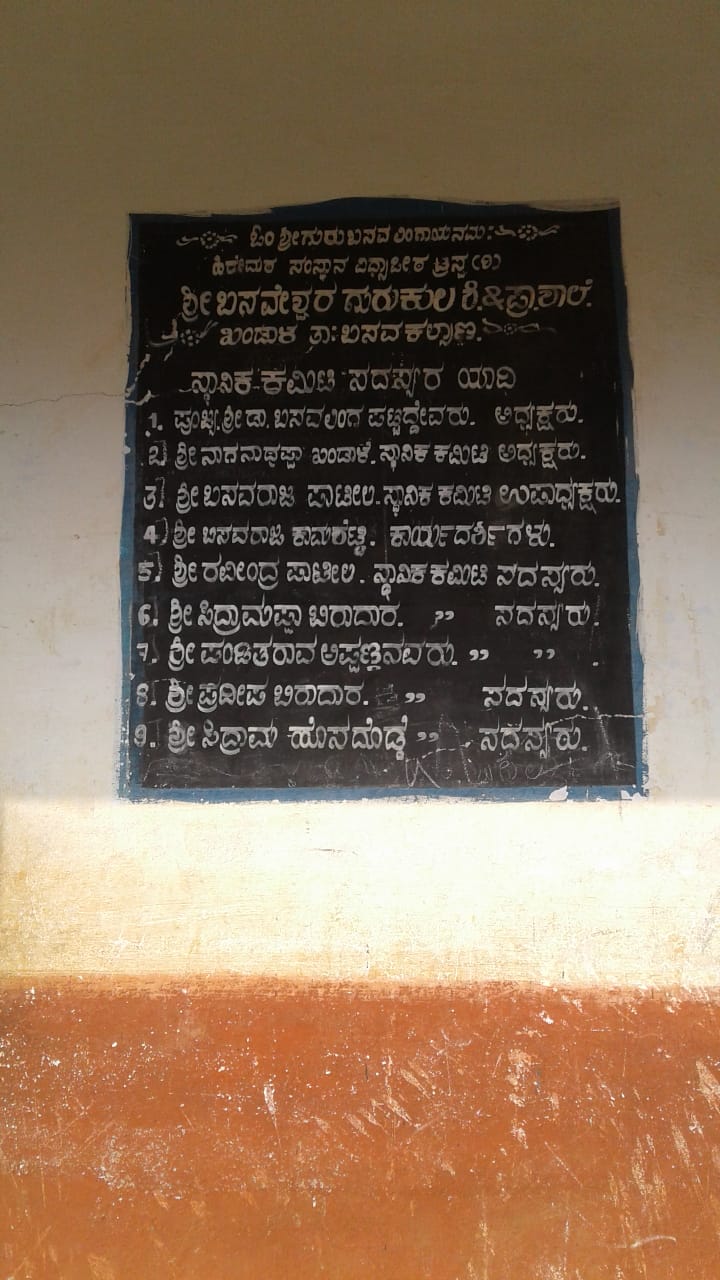 ಓಂ ಶ್ರೀಗುರು ಬಸವ ಲಿಂಗಾಯನಮಃ
ಹಿರೇಮಠ ಸಂಸ್ಥಾನ ವಿದ್ಯಾಪೀಠ ಟ್ರಸ್ಟ (ರಿ)
ಶ್ರೀ ಬಸವೇಶ್ವರ ಗುರುಕುಲ ಕಿ.&ಪ್ರಾ.ಶಾಲೆ.
ಖಂಡಾಳ ತಾ: ಬಸವಕಲ್ಯಾಣ.
ಸ್ಥಾನಿಕ ಕಮಿಟಿ ಸದಸ್ಯರ ಯಾದಿ
1. ಪೂಜ್ಯ.ಶ್ರೀ.ಡಾ. ಬಸವಲಿಂಗ ಪಟ್ಟದ್ದೇವರು. ಅಧ್ಯಕ್ಷರು.
2) ಶ್ರೀ ನಾಗನಾಥಪ್ಪಾ ಖಂಡಾಳೆ. ಸ್ಥಾನಿಕ ಕಮಿಟಿ ಅಧ್ಯಕ್ಷರು.
3) ಶ್ರೀ ಬಸವರಾಜ ಪಾಟೀಲ. ಸ್ಥಾನಿಕ ಕಮಿಟಿ ಉಪಾಧ್ಯಕ್ಷರು.
4) ಶ್ರೀ ಬಸವರಾಜ ಕಾಮಶೆಟ್ಟಿ. ಕಾರ್ಯದರ್ಶಿಗಳು.
5) ಶ್ರೀ ರವೀಂದ್ರ ಪಾಟೀಲ. ಸ್ಥಾನಿಕ ಕಮಿಟಿ ಸದಸ್ಯರು.
6. ಶ್ರೀ ಸಿದ್ರಾಮಪ್ಪಾ ಬಿರಾದಾರ. ,, ಸದಸ್ಯರು.
7. ಶ್ರೀ ಪಂಡಿತರಾವ ಅಪ್ಪಣ್ಣನವರು. ,, ,, .
8. ಶ್ರೀ ಪ್ರದೀಪ ಬಿರಾದಾರ. ,, ಸದಸ್ಯರು.
9. ಶ್ರೀ ಸಿದ್ರಾಮ ಹೊಸದೊಡ್ಡೆ ,, ಸದಸ್ಯರು.